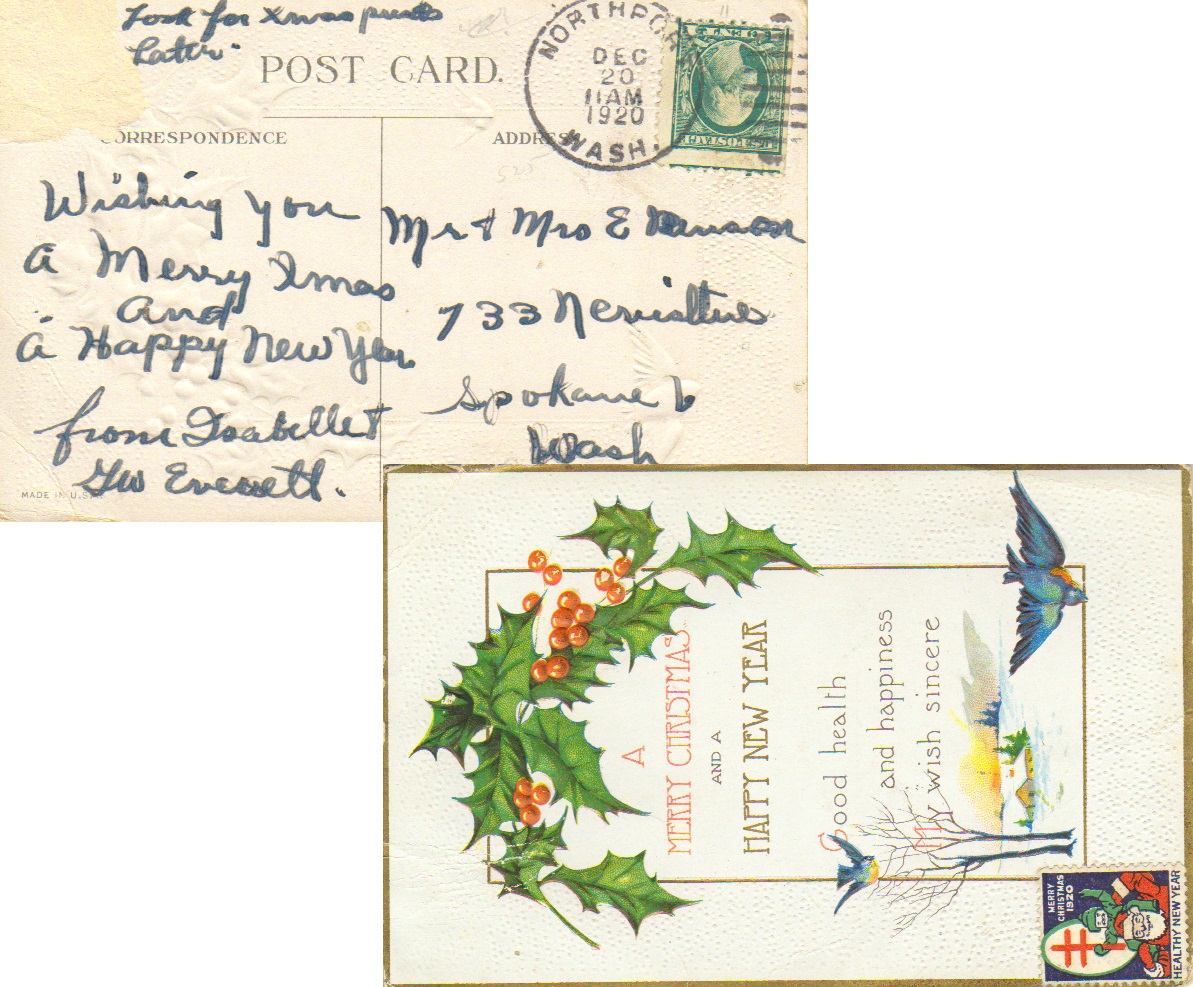 Look for Xmas pkts
Later.
POST CARD.
CORRESPONDENCE
ADDRESS
NORTHPORT
DEC
20
11 AM
1920
WASH.
U.S. POSTAGE
1 CENT 1
Wishing you
a Merry Xmas
and
a Happy New Year
from Isabelle &
GW Everett.
MADE IN U.S.A.
Mr & Mrs E
733
Spokane
Wash
A
MERRY CHRISTMAS
AND A
HAPPY NEW YEAR
Good health
and happiness
My wish sincere
MERRY
CHRISTMAS
1920
HEALTHY NEW YEAR